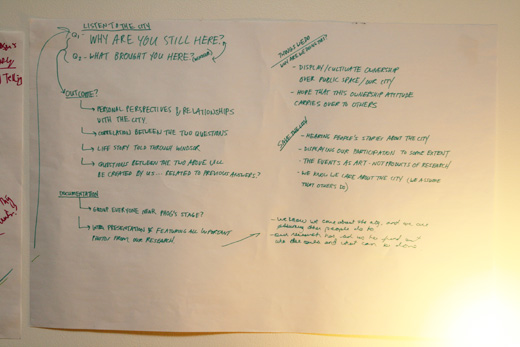 LISTEN TO THE CITY
Q1 - WHY ARE YOU STILL HERE?
Q2 - WHAT BROUGHT YOU HERE?
OUTCOME?
PERSONAL PERSPECTIVES & RELATIONSHIPS
WITH THE CITY.
CORRELATIONS BETWEEN THE TWO QUESTIONS
LIFE STORY TOLD THROUGH WINDSOR
QUESTIONS BETWEEN THE TWO ABOVE (ALL
BE CREATED BY US... RELATED TO PREVIOUS ANSWERS?
DOCUMENTATION
STAGE?
PRESENTATION & FEATURING ALL IMPORTANT
FROM OUR RESEARCH
THINGS WE DO
WHY ARE WE DOING THIS?
- DISPLAY/CULTIVATE OWNERSHIP
OVER PUBLIC SPACE/OUR CITY
- HOPE THAT THIS OWNERSHIP ATTITUDE
CARRIES OVER TO OTHERS.
- HEARING PEOPLE'S STORIES ABOUT THE CITY
- DISPLAYING OUR PARTICIPATION TO SOME EXTENT
- THE EVENTS AS ART - NOT PRODUCTS OF RESEARCH
- WE KNOW WE CARE ABOUT THE CITY (WE ASSUME
THAT OTHERS DO)
- we know we care about the city, and we are
people do to
- our research has led us to find out
who else cares and what can be done